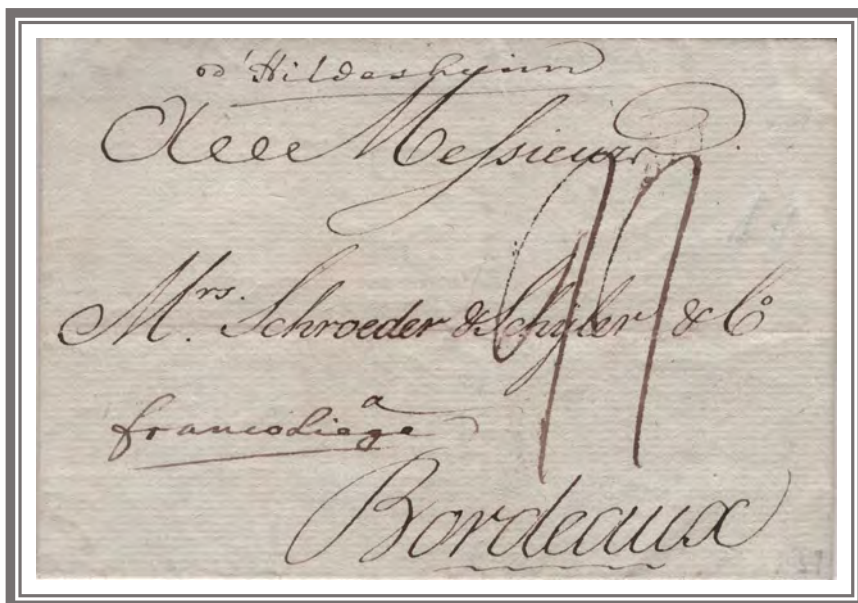 d'Hildesheim
A Messieurs
Mrs. Schroeder & Schÿler & Co
franco Liege
a
Bordeaux